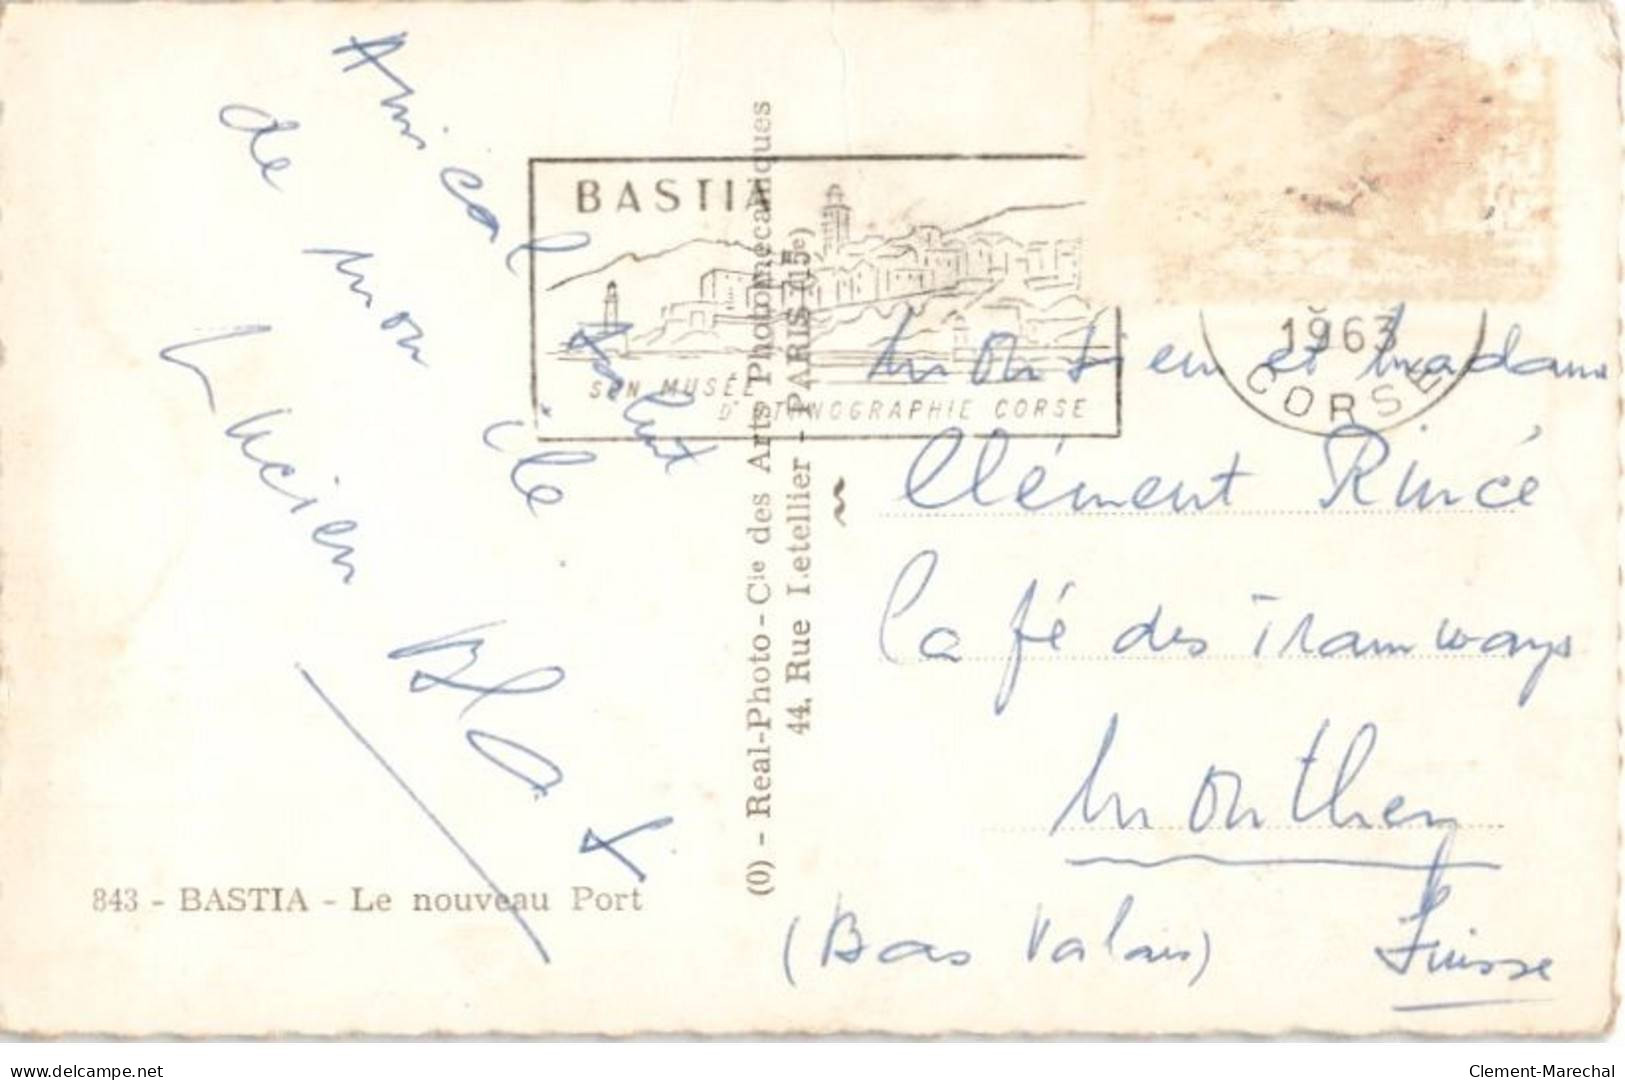 Amical salut
de mon île.
Lucien
843 - BASTIA - Le nouveau Port
(0) - Real-Photo - Cie des Arts Photomécaniques
44, Rue Letellier - PARIS (15e)
BASTIA
SON MUSÉE
D'ETHNOGRAPHIE CORSE
1963
CORSE
Monsieur et Madame
Clément Rincé
Café des Tramways
Monthey
(Bas Valais) Suisse
Clement-Marechal
delcampe.net